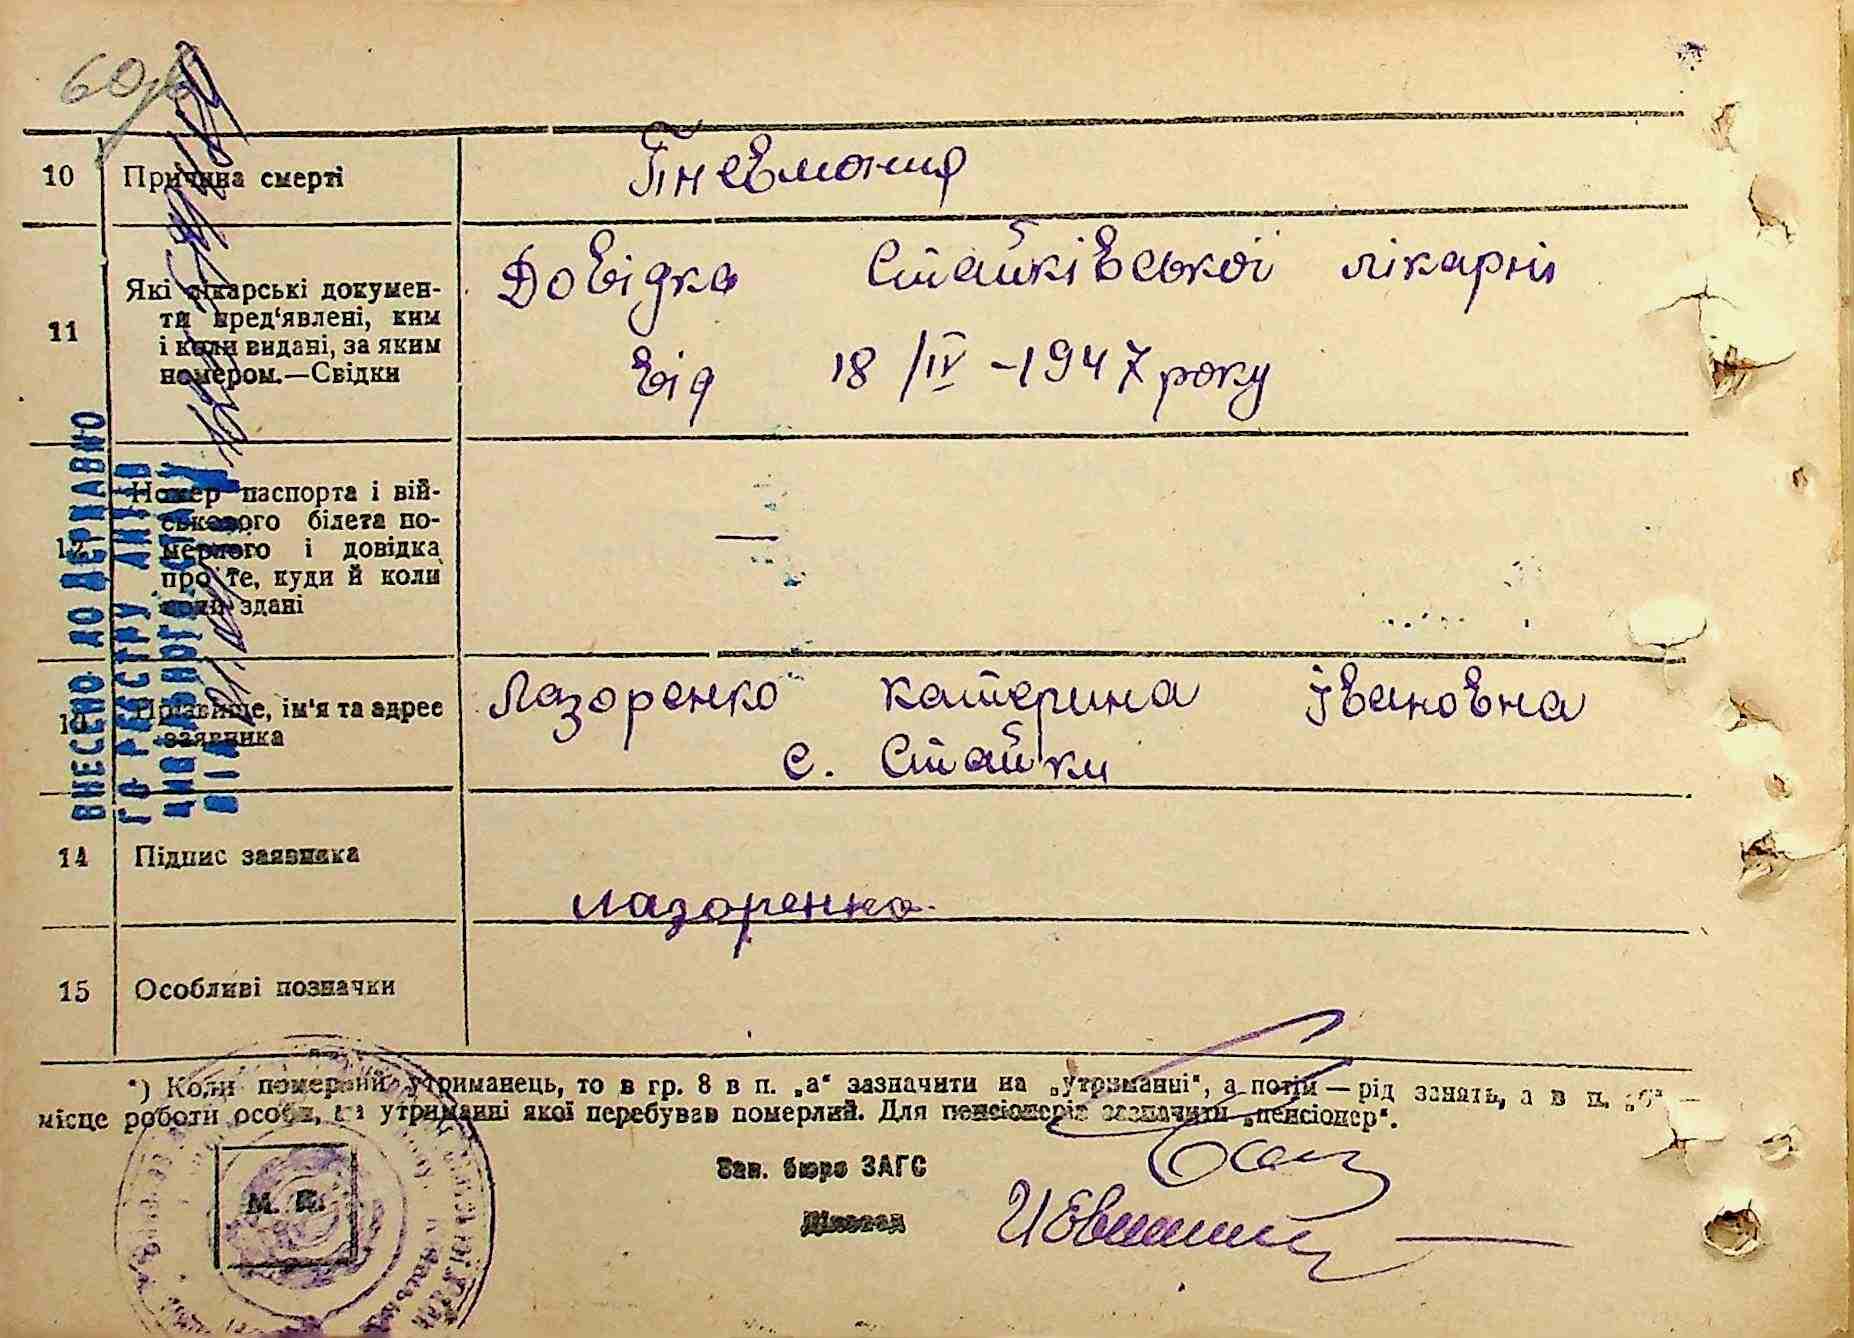 60
10 Причина смерті Пневмония
11 Які лікарські докумен-
ти пред'явлені, ким
і коли видані, за яким
номером.—Свідки
Довідка Стайківської лікарні
від 18/IV -1947 року
12 Номер паспорта і вій-
ськового білета по-
мерлого і довідка
про те, куди й коли
вони здані
—
13 Прізвище, ім'я та адрес
заявника
Лазоренко Катерина Івановна
с. Стайки
14 Підпис заявника
Лазоренко.
15 Особливі позначки
*) Коли померлий утриманець, то в гр. 8 в п. „а“ зазначити на „утриманні“, а потім — рід занять, а в п. „б“ —
місце роботи особи, на утриманні якої перебував померлий. Для пенсіонерів зазначити „пенсіонер“.
Зав. бюро ЗАГС
Діловод
М. П.
ВНЕСЕНО ДО ДЕРЖАВНО
ГО РЕЄСТРУ АКТІВ
ЦИВІЛЬНОГО СТАНУ
ВІД